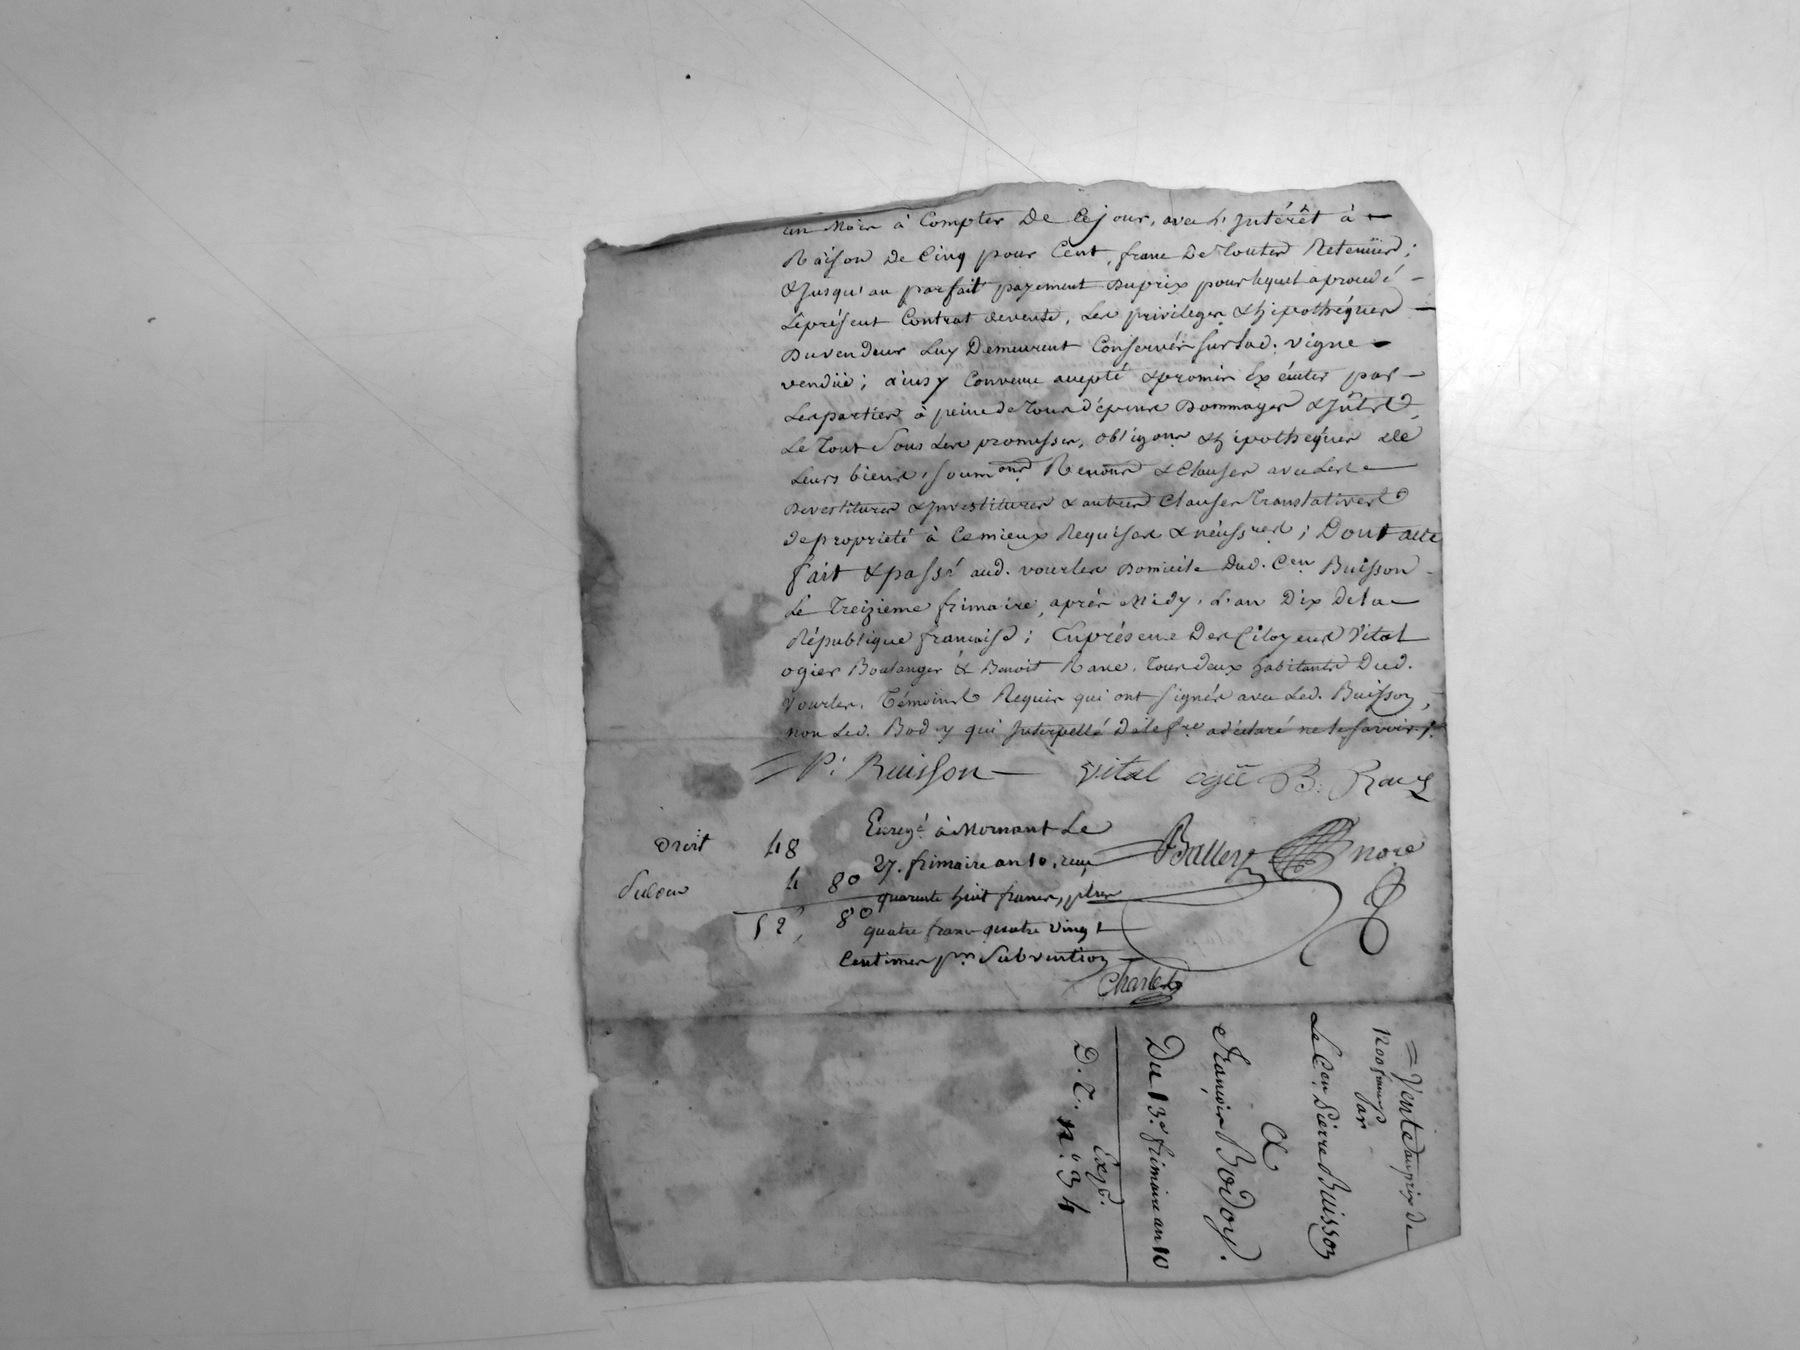 un mois à Compter De Cejour, avec L'jntérêt à
Raison de Cinq pour Cent, franc De Toutes Retenües;
&jusqu'au parfait payement Duprix pour lequel a procedé
Leprésent Contrat devente, Les privileges &hipothéques
Duvendeur Luy Demeurent Conservés sur lad. vigne
vendüe; ainsy Convenu accepté &promis Exécuter par
Lesparties à peine de Tous dépens Dommages &jnt.rts
Le Tout Sous Les promesses, obligons &hipotheques de
Leurs biens, soumons Renons & Clauses avec Les
Devestitures &jnvestitures &autres Clauses Translatives
depropriété à Cemieux Requises & néussres; Dont acte
fait &passé aud. vourles Domicile Dud. Cen Buisson
Le Treizieme frimaire, après Midy, L'an Dix Dela
République francaise; Enprésence Des Citoyens Vital
ogier Boulanger & Benoit Rave, Tous deux habitants Dud.
Vourles, Témoins Requis qui ont signés avec Led. Buisson,
non Led. Bodoy qui jnterpellé Dele fre adéclaré ne le savoir /.
P. Buisson vital ogié B. Rave
Enregé à Mornant Le
27. frimaire an 10, reçu
quarante huit francs, plus
quatre franc quatre vingt
Centimes pr Subvention
Charles
Droit 48
Subon 4 80
52, 80
nore
= Vente auprix de
1200 francs
par
Le Cen Pierre Buisson
A
François Bodoy.
Du 13.e frimaire an 10
Expé.
D. T. n.o 34